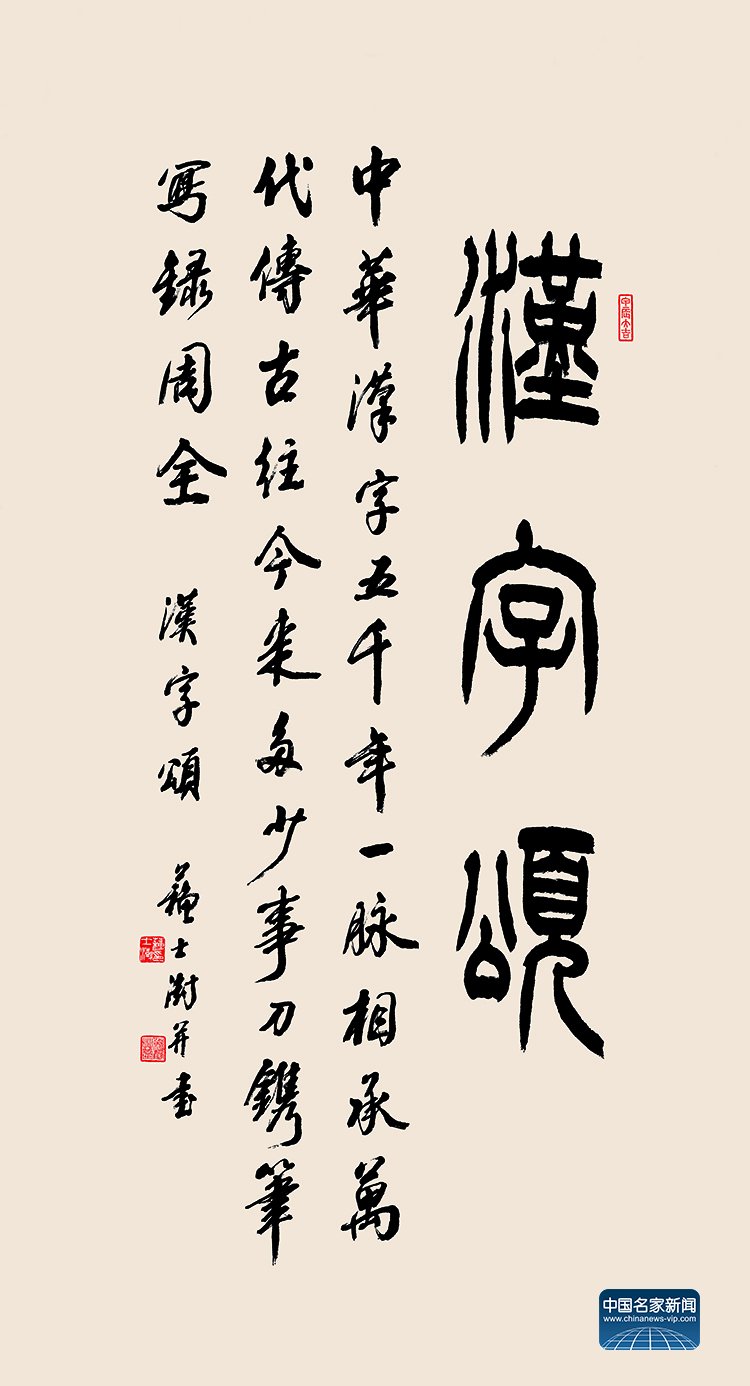 漢字頌
中華漢字五千年一脉相承萬
代傳古往今来多少事刀鐫筆
寫録周全 漢字頌 蘇士澍并書
中国名家新闻
www.chinanews-vip.com